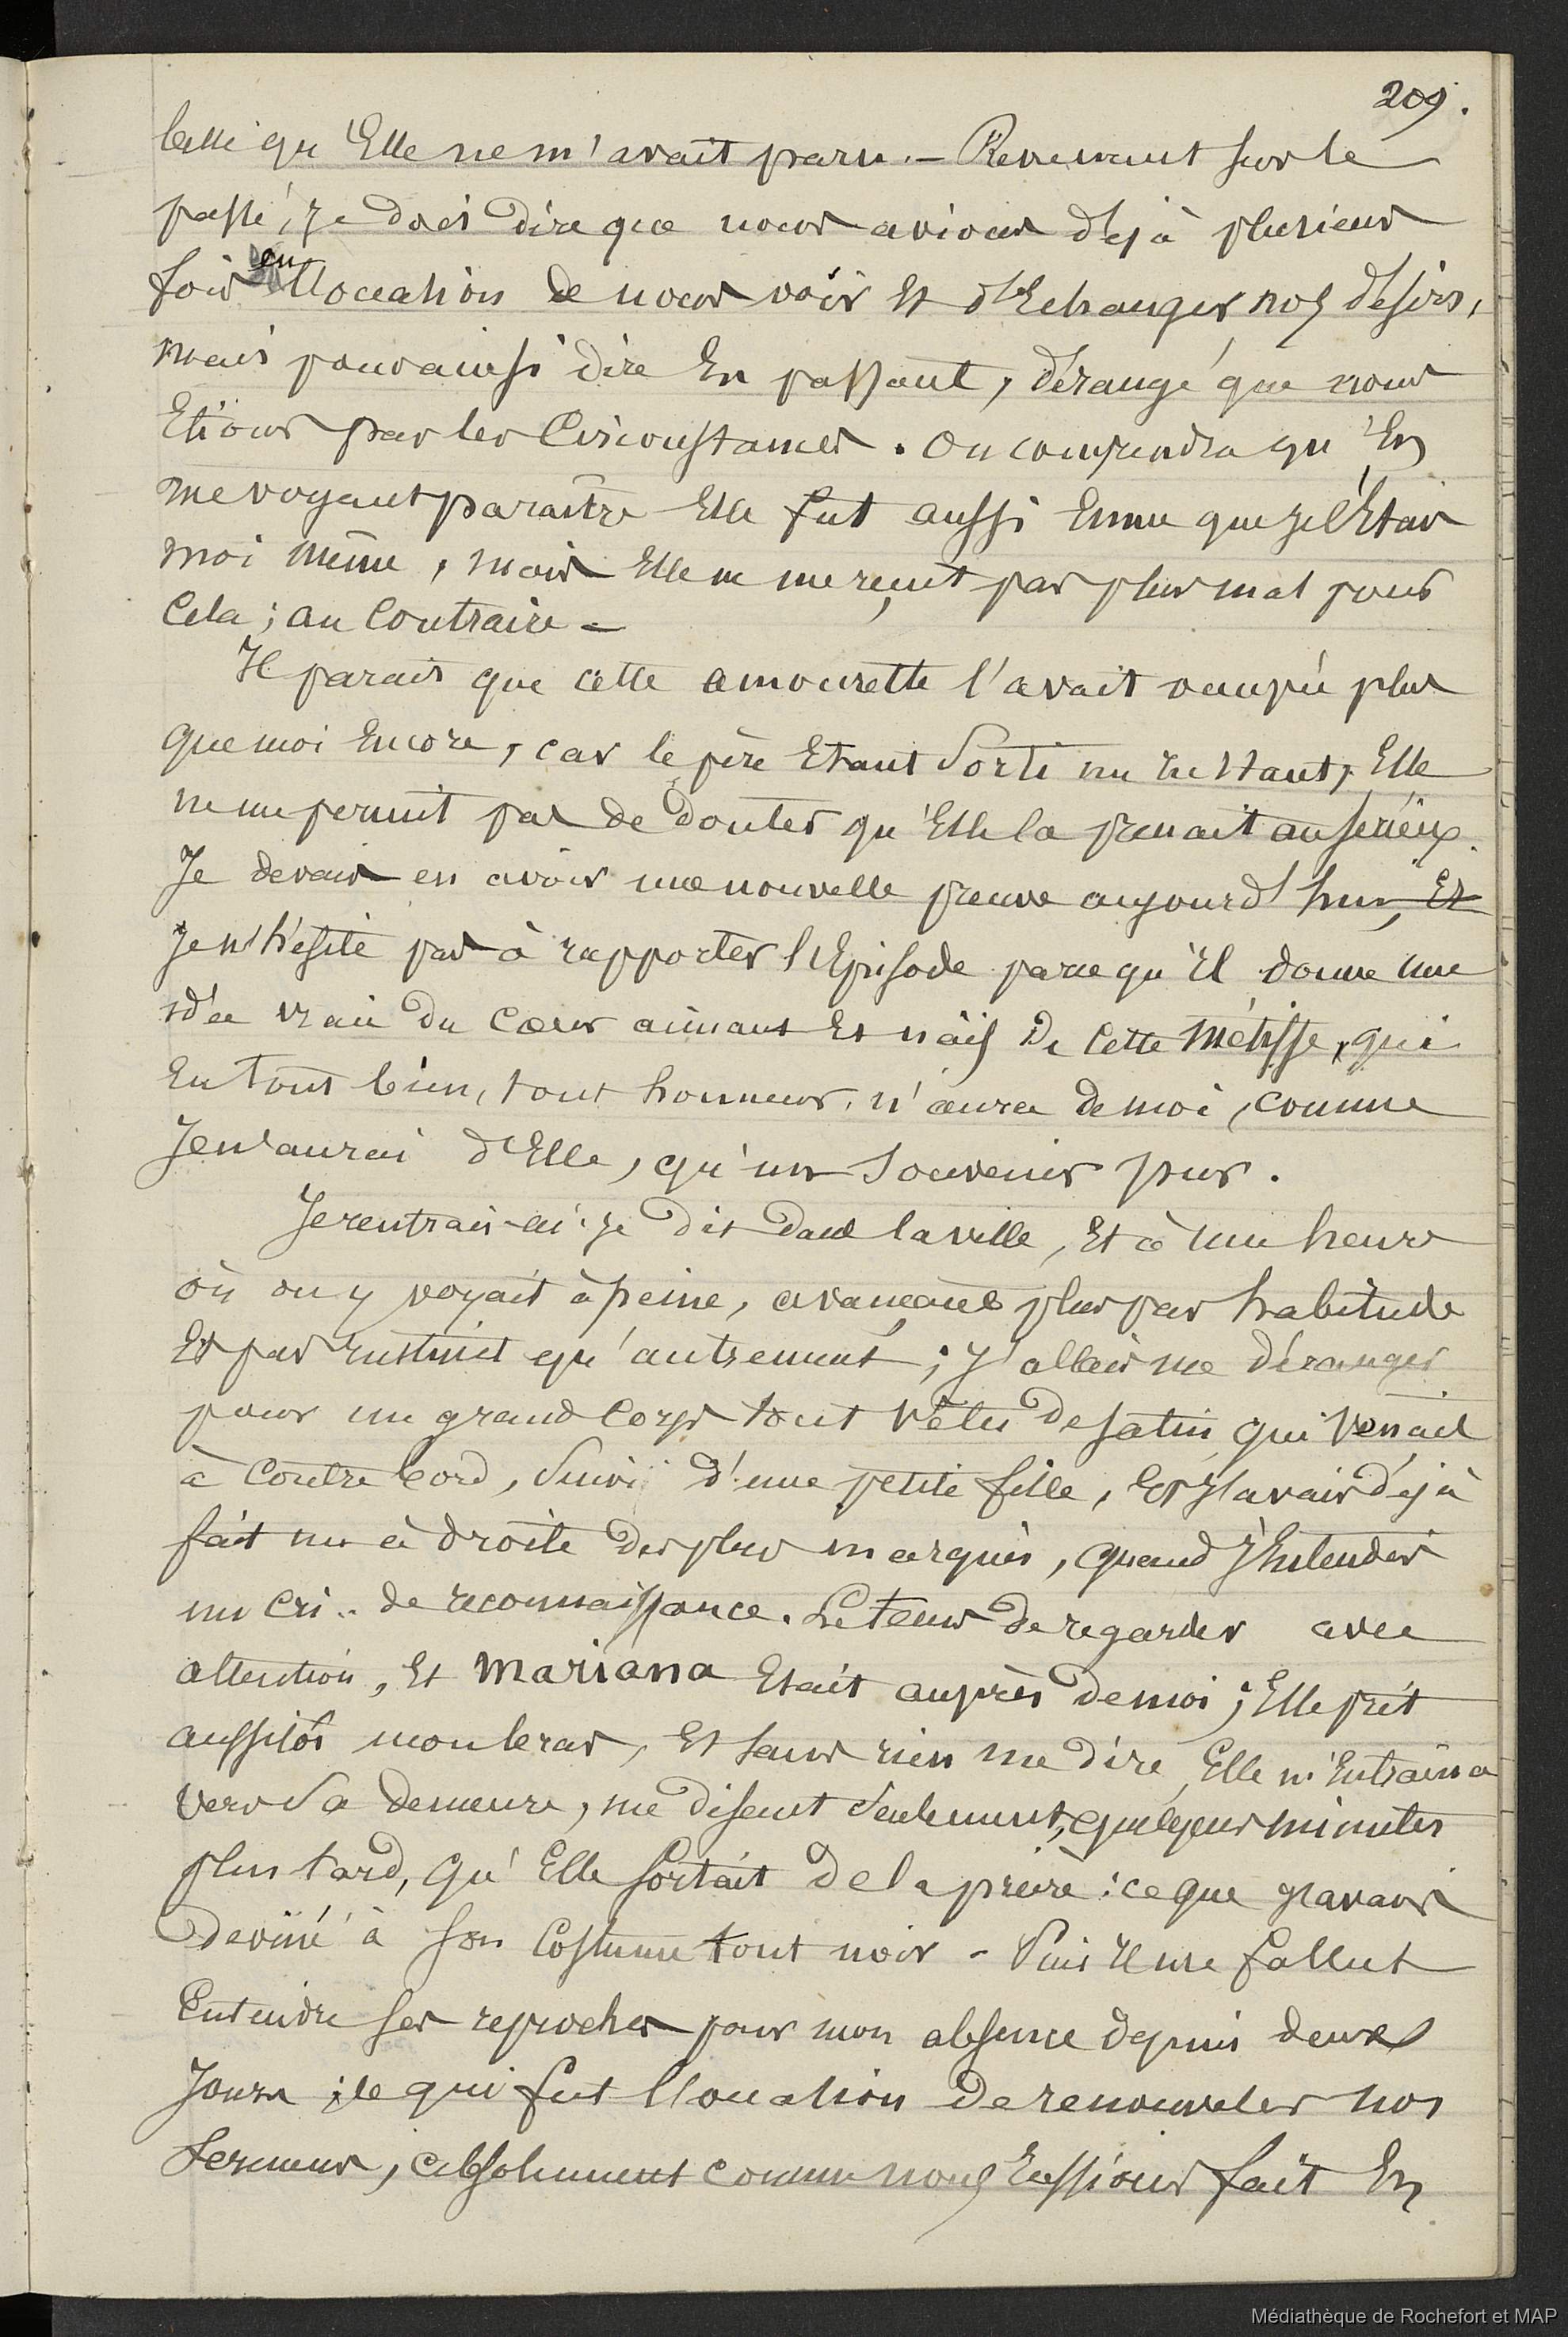 209.
belle qu'Elle ne m'avait paru. – Revenant sur le
passé, je dois dire que nous avions dejà plusieurs
fois eu l'occasion de nous voir Et d'Echanger nos desirs,
mais pour ainsi dire En passant, dérangé que nous
Etions par les Circonstances. On comprendra qu'En
me voyant paraître Elle fut aussi Emue que je l'Etais
moi même, mais Elle ne me reçut pas plus mal pour
Cela; au Contraire –
Il parait que cette amourette l'avait occupée plus
que moi Encore, car le père Etant Sorti un Instant, Elle
ne me permit pas de douter qu'Elle la prenait au serieux.
Je devais en avoir une nouvelle preuve aujourd'hui, Et
Je n'hésite pas à rapporter l'Episode parce qu'Il donne une
idée vraie du Coeur aimant Et naïf de Cette métisse, qui
En tout bien, tout honneur, n'aura de moi, comme
Je n'aurai d'Elle, qu'un Souvenir pur.
Je rentrais ai-je dit dans la ville, Et à une heure
où on y voyait à peine, avançant plus par habitude
Et par Instinct qu'autrement; J'allais me déranger
pour un grand Corps tout vêtu de satin qui venait
à Contre bord, Suivi d'une petite fille, Et J'avais déjà
fait un à droite des plus marqués, quand J'Entendis
un Cri.. de reconnaissance. Le temps de regarder avec
attention, Et Mariana Etait auprès de moi; Elle prit
aussitôt mon bras, Et sans rien me dire, Elle m'Entraîna
vers Sa demeure, me disant Seulement, quelques minutes
plus tard, qu'Elle sortait de la prière: ce que j'avais
deviné à son Costume tout noir – Puis Il me fallut
Entendre ses reproches pour mon absence depuis deux
Jours; ce qui fut l'occasion de renouveler nos
sermens, absolument comme nous Eussions fait En
Médiathèque de Rochefort et MAP